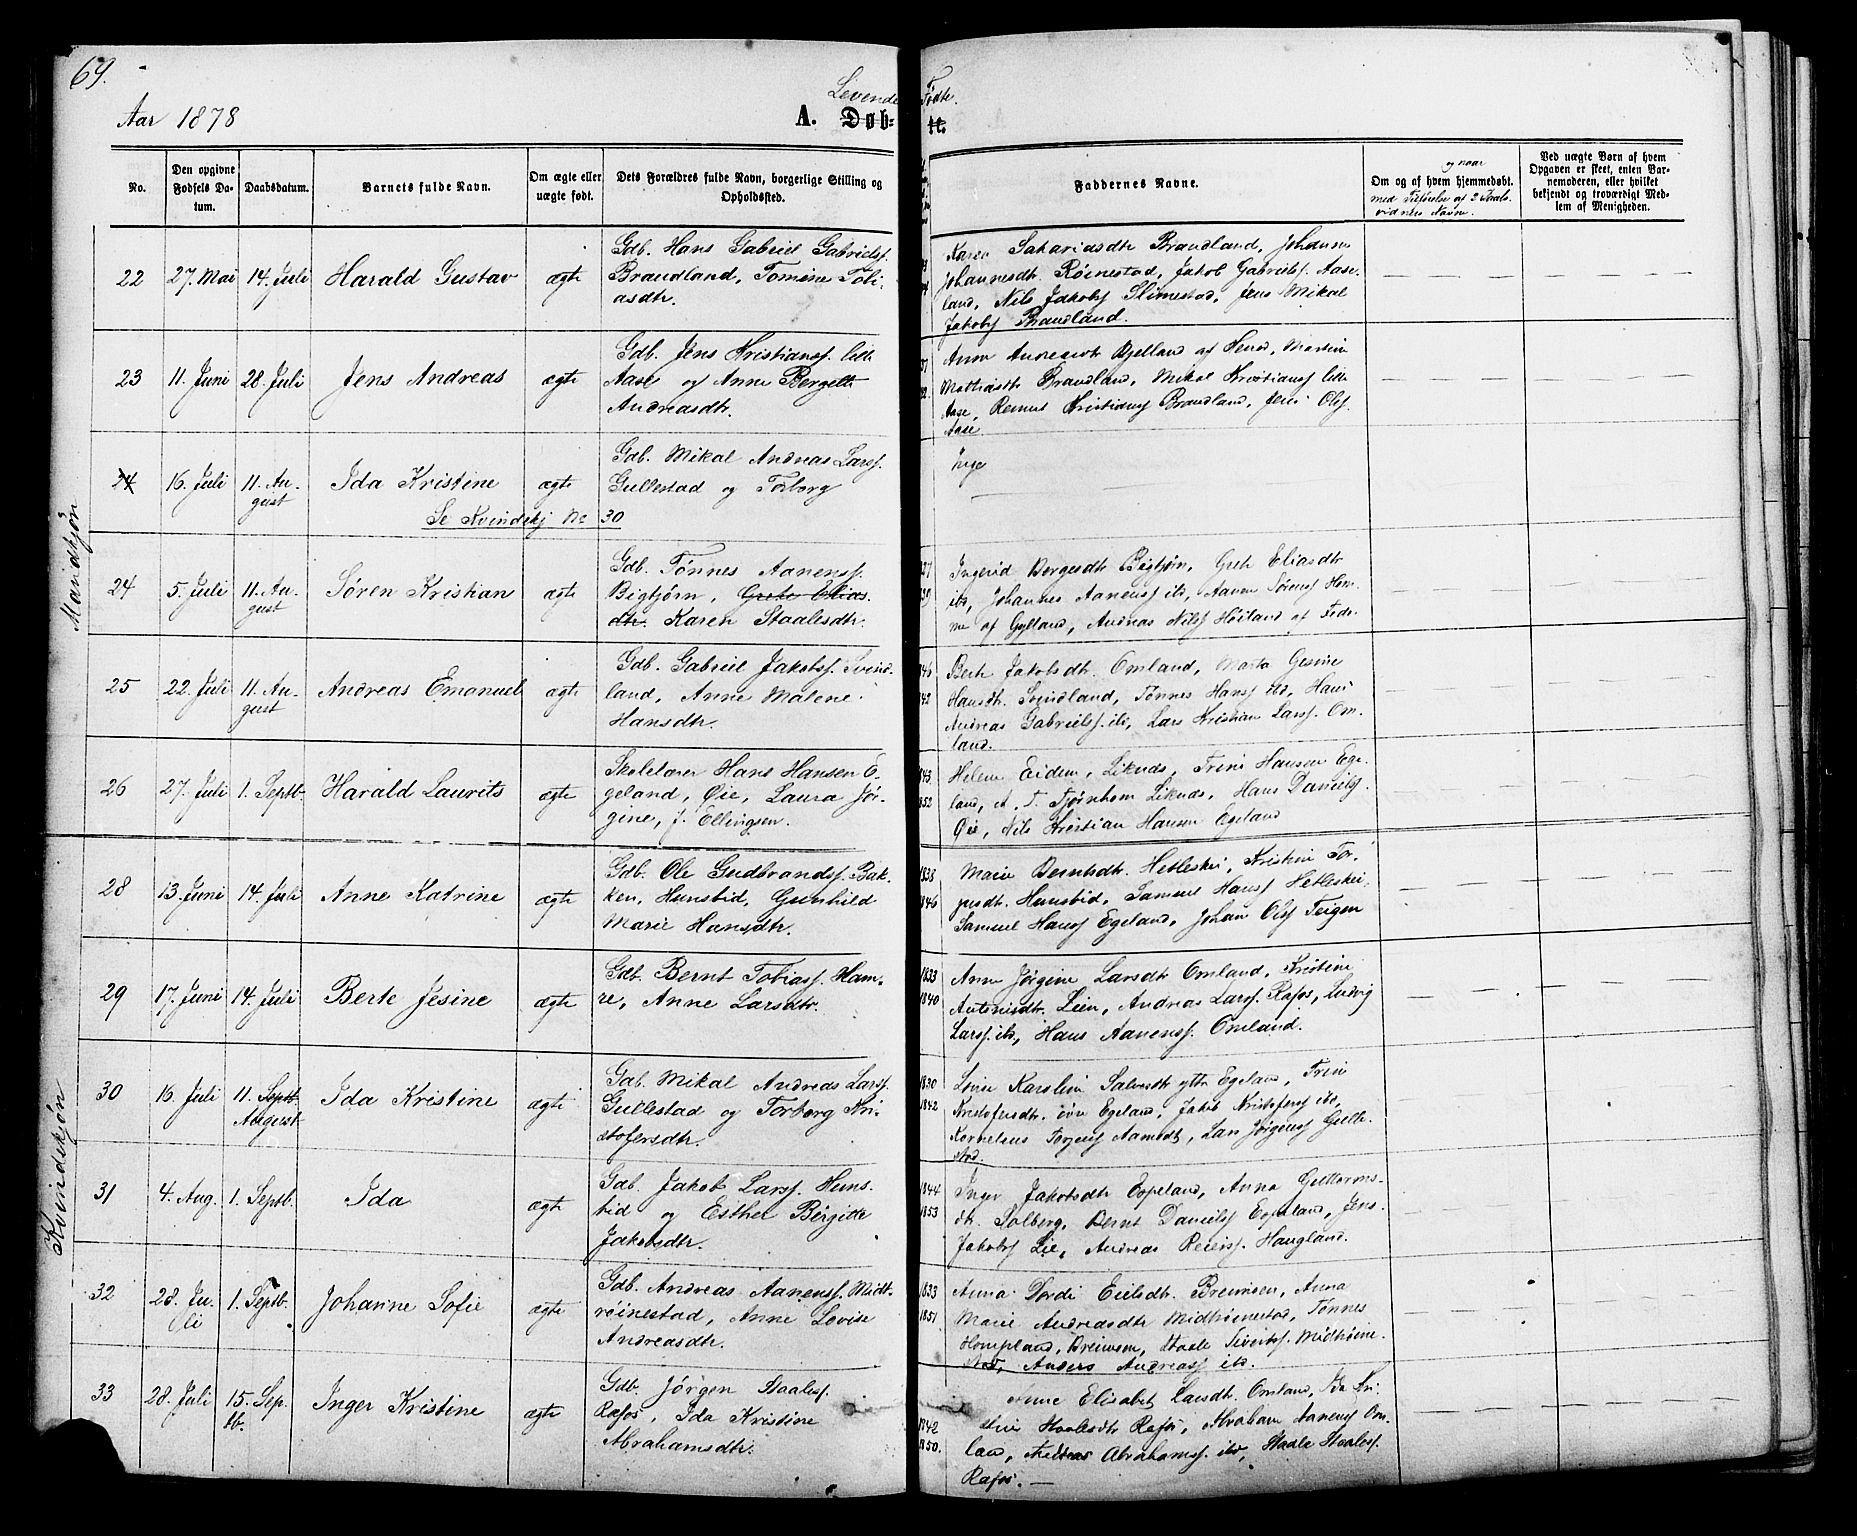 69.
Aar 1878
Levende Fødte.
A. Døb- te.
No.
Den opgivne Fødsels Da-
tum.
Daabsdatum.
Barnets fulde Navn.
Om ægte eller
uægte født.
Dets Forældres fulde Navn, borgerlige Stilling og
Opholdssted.
Faddernes Navne.
og naar
Om og af hvem hjemmedøbt.
med Tilførelse af 2 Daabs
vidners Navne.
Ved uægte Børn af hvem
Opgaven er skeet, enten Bar-
nemoderen, eller hvilket
bekjendt og troværdigt Med-
lem af Menigheden.
Mandkjøn
22 27. Mai 14. Juli Harald Gustav ægte
Gdb. Hans Gabriel Gabrielsf.
Brandland, Tomine Tobi-
asdtr.
Karen Sakariasdtr Brandland, Johanne
Johannesdtr. Røinestad, Jakob Gabrielsf. Aase-
land, Nils Jakobsf Slimestad, Jens Mikal
Jakobsf Brandland.
23 11. Juni 28. Juli Jens Andreas ægte
Gdb. Jens Kristiansf. lille
Aase og Anne Bergette
Andreasdtr.
Anne Andreasdtr Bjelland af Herad, Martine
Mathiasdtr Brandland, Mikal Kristiansf lille
Aase, Rasmus Kristiansf Brandland, Jens Olsf.
Aase.
24 16. Juli 11. Au-
gust Ida Kristine ægte
Gdb. Mikal Andreas Larsf.
Gullestad og Torborg
Se Kvindekj No 30
Inge
24 5. Juli 11. Au-
gust Søren Kristian ægte
Gdb. Tønnes Aanensf.
Bigtjørn, Grete Elias
dtr. Karen Staalesdtr.
Ingerid Bergesdtr Bigtjøn, Grete Eliasdtr
ibd, Johannes Aanensf ibd, Aanen Sørensf Hom-
me af Gylland, Andreas Nilsf Høiland af Fede.
25 22. Juli 11. Au-
gust Andreas Emanuel ægte
Gdb. Gabriel Jakobsf. Svind-
land, Anne Malene
Hansdtr.
1846
1842
Berte Jakobsdtr. Omland, Marta Gesine
Hansdtr. Svindland, Tønnes Hansf ibd, Hans
Andreas Gabrielsf. ibd, Lars Kristian Larsf. Om-
land.
26 27. Juli 1. Septb. Harald Laurits ægte
Skolelærer Hans Hansen E-
geland, Øie, Laura Jør-
gine, f. Ellingsen.
1843
1852
Helene Eidem, Liknes, Trine Hansen Ege-
land, A. T. Tjørnhom Liknes, Hans Danielsf
Øie, Nils Kristian Hansen Egeland
Kvindekjøn
28 13. Juni 14. Juli Anne Katrine ægte
Gdb. Ole Gudbrandsf. Bak-
ken, Hunsbid, Gunhild
Marie Hansdtr.
1838
1846
Marie Berntsdtr. Hetleskei, Kristine Tor-
pesdtr. Hunsbid, Samuel Hansf Hetleskei,
Samuel Hansf Egeland, Johan Olsf Teigen
29 17. Juni 14. Juli Berte Jesine ægte
Gdb. Bernt Tobiasf. Ham-
re, Anne Larsdtr.
1833
1840
Anne Jørgine Larsdtr Omland, Kristine
Antonisdtr. Lien, Andreas Larsf. Rafos, Ludvig
Larsf. ibd, Hans Aanensf. Omland.
30 16. Juli 11. Septb.
August Ida Kristine ægte
Gdb. Mikal Andreas Larsf.
Gullestad og Torborg Kri-
stofersdtr.
1830
1842
Karoline Salvesdtr ytre Egeland, Trine
Kristofersdtr. øvre Egeland, Jakob Kristofersf ibd,
Kornelius Torjusf Aamodt, Lars Jørgensf Gulle-
stad.
31 4. Aug. 1. Septb. Ida ægte
Gdb. Jakob Larsf. Huns-
bid og Esther Birgitte
Jakobsdtr.
1844
1853
Inger Jakobsdtr Espeland, Anna Guttorms-
dtr. Solberg, Bernt Danielsf Espeland, Jens
Jakobsf Lie, Andreas Reiersf. Haugland.
32 28. Ju-
li 1. Septb. Johanne Sofie ægte
Gdb. Andreas Aanensf. Midt-
røinestad, Anne Lovise
Andreasdtr.
1833
1851
Anna Dordi Eilsdtr. Breimsen, Anna
Marie Andreasdtr Midtrøinestad, Tønnes
Hompland, Breimsen, Staale Sivertsf. Midtrøine-
stad, Anders Andreasf ibd.
33 28. Juli 15. Sep-
tb. Inger Kristine ægte
Gdb. Jørgen Staalesf.
Rafos, Ida Kristine
Abrahamsdtr.
1842
1850.
Anne Elisabet Larsdtr. Omland, Ida Kri-
stine Staalesdtr Rafos, Abraham Aanensf Om-
land, Andreas Abrahamsf. ibd, Staale Staalesf.
Rafos. —